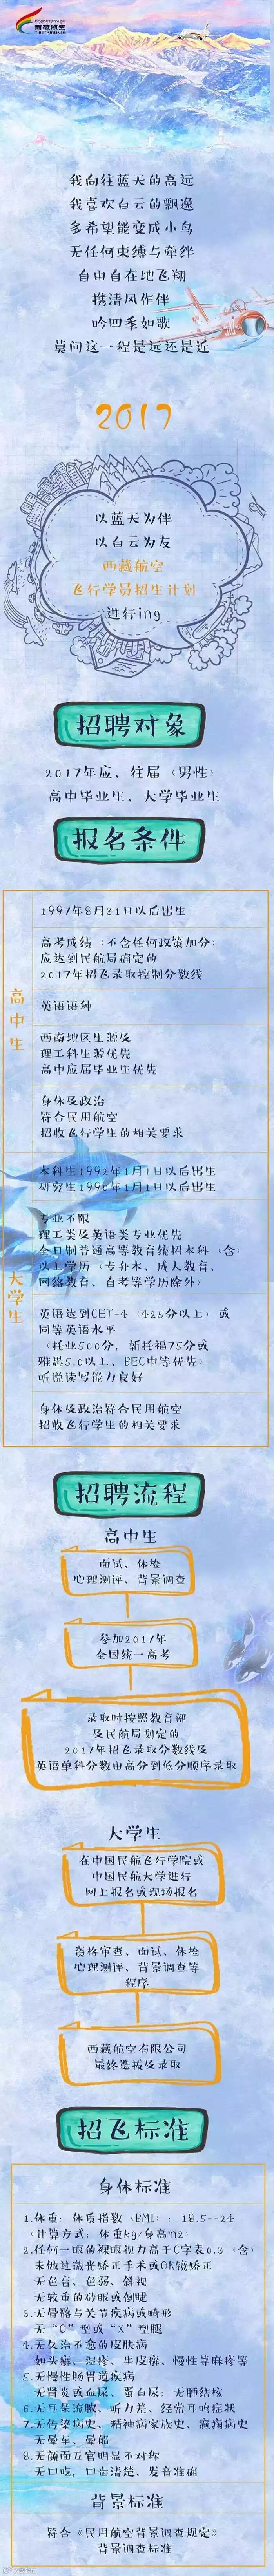 西藏航空
TIBET AIRLINES
我向往蓝天的高远
我喜欢白云的飘逸
多希望能变成小鸟
无任何束缚与牵绊
自由自在地飞翔
携清风作伴
吟四季如歌
莫问这一程是远还是近
2017
以蓝天为伴
以白云为友
西藏航空
飞行学员招生计划
进行ing
招聘对象
2017年应、往届(男性)
高中毕业生、大学毕业生
报名条件
高中生
1997年8月31日以后出生
高考成绩(不含任何政策加分)
应达到民航局确定的
2017年招飞录取控制分数线
英语语种
西南地区生源及
理工科生源优先
高中应届毕业生优先
身体及政治
符合民用航空
招收飞行学生的相关要求
大学生
本科生1992年1月1日以后出生
研究生1990年1月1日以后出生
专业不限
理工类及英语类专业优先
全日制普通高等教育统招本科(含)
以上学历(专升本、成人教育、
网络教育、自考等学历除外)
英语达到CET-4(425分以上)或
同等英语水平
(托业500分,新托福75分或
雅思5.0以上、BEC中等优先)
听说读写能力良好
身体及政治符合民用航空
招收飞行学生的相关要求
招聘流程
高中生
面试、体检
心理测评、背景调查
参加2017年
全国统一高考
录取时按照教育部
及民航局划定的
2017年招飞录取分数线及
英语单科分数由高分到低分顺序录取
大学生
在中国民航飞行学院或
中国民航大学进行
网上报名或现场报名
资格审查、面试、体检
心理测评、背景调查等
程序
西藏航空有限公司
最终选拔及录取
招飞标准
身体标准
1.体重:体质指数(BMI):18.5--24
(计算方式:体重kg/身高m2)
2.任何一眼的裸眼视力高于C字表0.3(含)
未做过激光矫正手术或OK镜矫正
无色盲、色弱、斜视
无较重的砂眼或倒睫
3.无骨骼与关节疾病或畸形
无“O”型或“X”型腿
4.无久治不愈的皮肤病
如头癣、湿疹、牛皮癣、慢性荨麻疹等
5.无慢性肠胃道疾病
无肾炎或血尿、蛋白尿;无肺结核
6.无耳朵流脓、听力差、经常耳鸣症状
7.无传染病史、精神病家族史、癫痫病史
无晕车、晕船
8.无颜面五官明显不对称
无口吃,口齿清楚、发音准确
背景标准
符合《民用航空背景调查规定》
背景调查标准